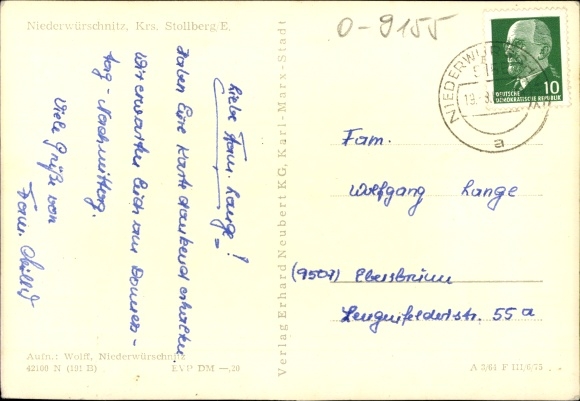 Niederwürschnitz, Krs. Stollberg/E.
Liebe Fam. Lange!
Haben Eure Karte dankend erhalten.
Wir erwarten Euch am Donners-
tag-Nachmittag.
Viele Grüße von
Fam.
Aufn.: Wolff, Niederwürschnitz
42100 N (191 II) EVP DM —,20
Verlag Erhard Neubert KG, Karl-Marx-Stadt
0-9155
NIEDERWÜR
a
10
DEUTSCHE
DEMOKRATISCHE REPUBLIK
Fam.
Wolfgang Lange
(9501) Ebersbrunn
Lengenfelderstr. 55a
A 3/64 F III/6/75